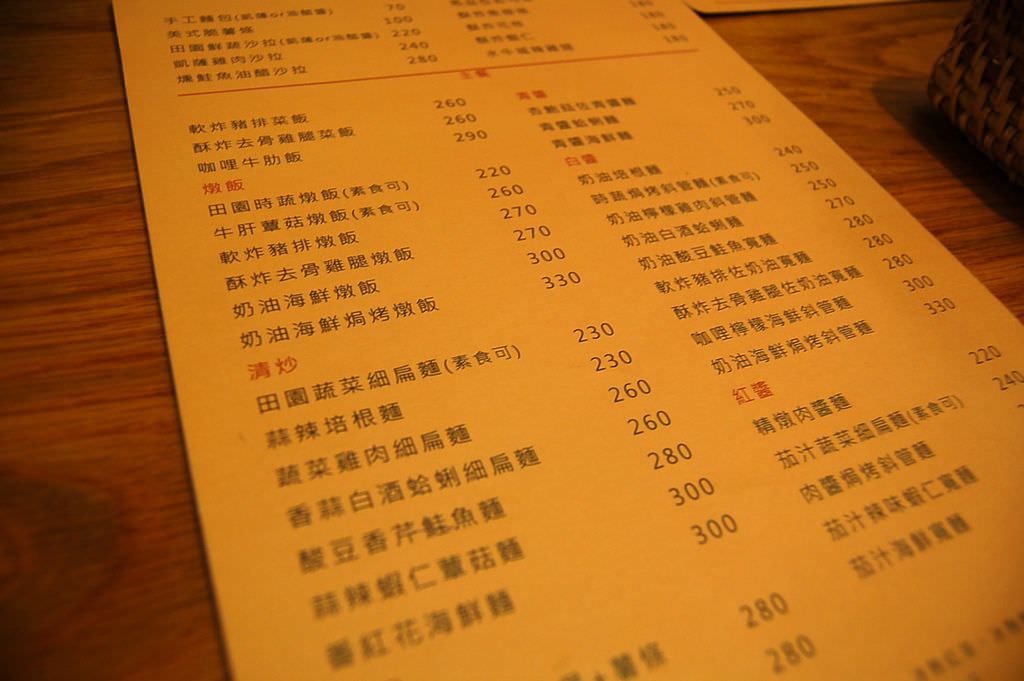 手工麵包(凱薩or油醋醬) 70
美式脆薯條 100
田園鮮蔬沙拉(凱薩or油醋醬) 220
凱薩雞肉沙拉 240
燻鮭魚油醋沙拉 280
180
180
主餐
軟炸豬排菜飯 260
酥炸去骨雞腿菜飯 260
咖哩牛肋飯 290
燉飯
田園時蔬燉飯(素食可) 220
牛肝蕈菇燉飯(素食可) 260
軟炸豬排燉飯 270
酥炸去骨雞腿燉飯 270
奶油海鮮燉飯 300
奶油海鮮焗烤燉飯 330
清炒
田園蔬菜細扁麵(素食可) 230
蒜辣培根麵 230
蔬菜雞肉細扁麵 260
香蒜白酒蛤蜊細扁麵 260
酸豆香芹鮭魚麵 280
蒜辣蝦仁蕈菇麵 300
番紅花海鮮麵 300
青醬
杏鮑菇佐青醬麵 250
青醬蛤蜊麵 270
青醬海鮮麵 300
白醬
奶油培根麵 240
時蔬焗烤斜管麵(素食可) 250
奶油檸檬雞肉斜管麵 250
奶油白酒蛤蜊麵 270
奶油酸豆鮭魚寬麵 280
軟炸豬排佐奶油寬麵 280
酥炸去骨雞腿佐奶油寬麵 280
咖哩檸檬海鮮斜管麵 300
奶油海鮮焗烤斜管麵 330
紅醬
精燉肉醬麵 220
茄汁蔬菜細扁麵(素食可) 240
肉醬焗烤斜管麵
茄汁辣味蝦仁寬麵
茄汁海鮮寬麵
薯條 280
280